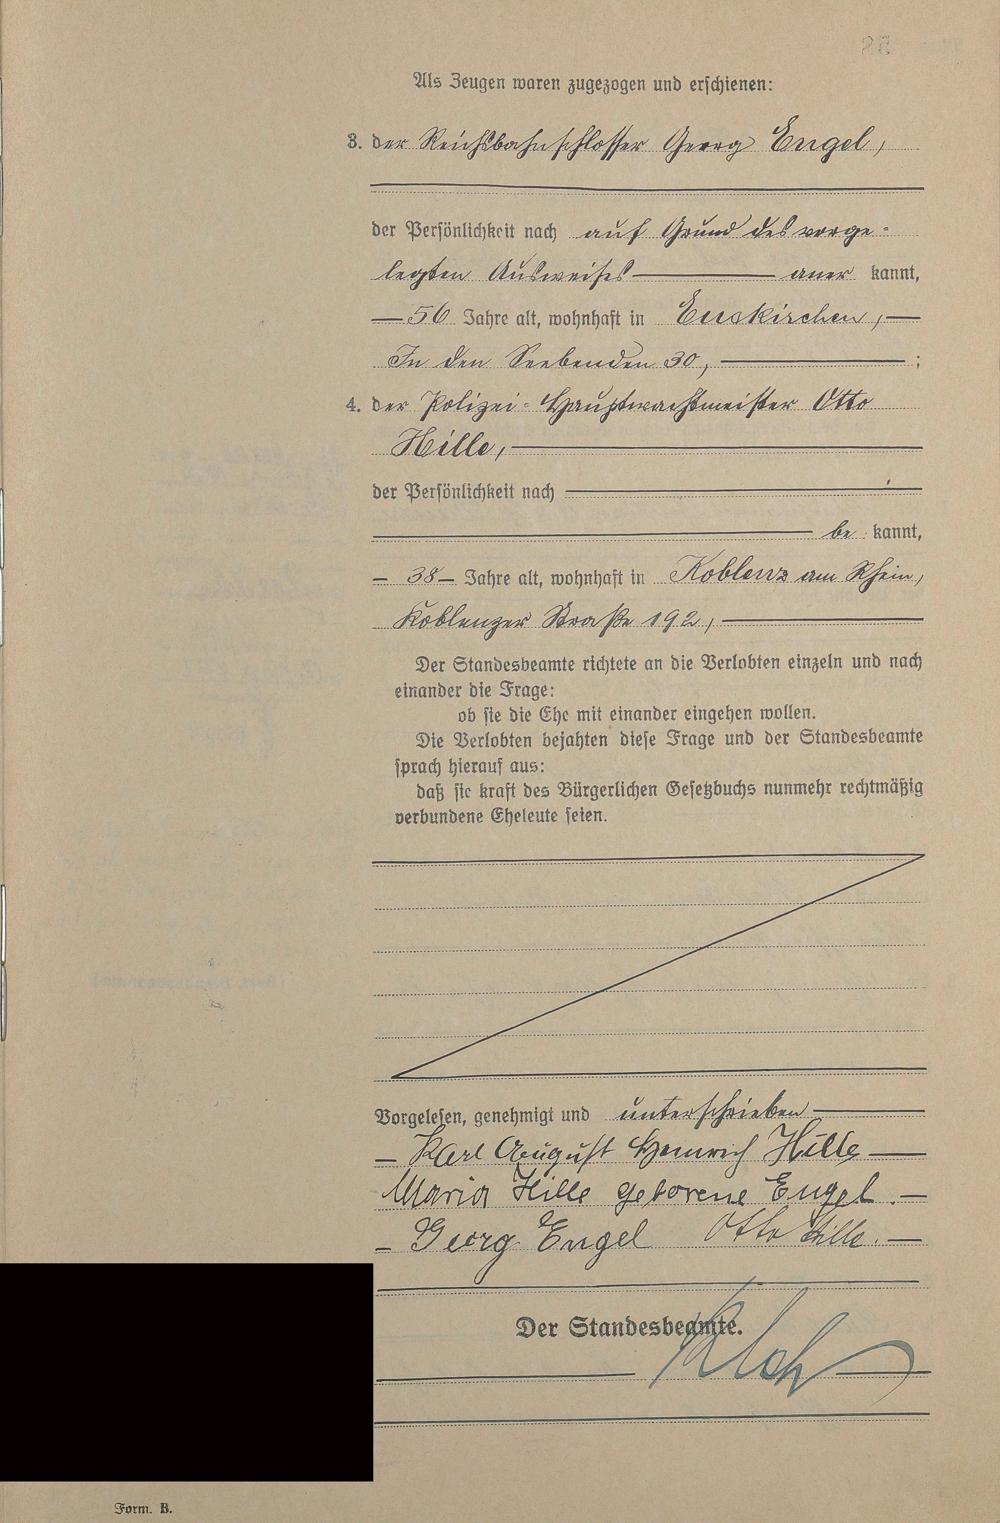 Als Zeugen waren zugezogen und erschienen:
3. der Reichsbahnschlosser Georg Engel,
der Persönlichkeit nach auf Grund des vorge-
legten Ausweises aner kannt,
56 Jahre alt, wohnhaft in Euskirchen,
In den Seebenden 30, ;
4. der Polizei-Hauptwachtmeister Otto
Hille,
der Persönlichkeit nach
be kannt,
38 Jahre alt, wohnhaft in Koblenz am Rhein,
Koblenzer Straße 192,
Der Standesbeamte richtete an die Verlobten einzeln und nach
einander die Frage:
ob sie die Ehe mit einander eingehen wollen.
Die Verlobten bejahten diese Frage und der Standesbeamte
sprach hierauf aus:
daß sie kraft des Bürgerlichen Gesetzbuchs nunmehr rechtmäßig
verbundene Eheleute seien.
Vorgelesen, genehmigt und unterschrieben
Karl August Heinrich Hille
Maria Hille geborene Engel.
Georg Engel Otto Hille.
Der Standesbeamte.
Form. B.